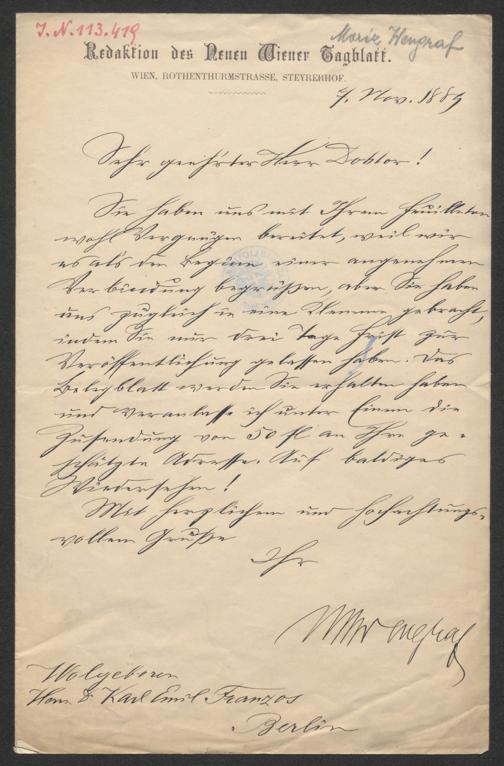 J.N. 113.419
Moriz Wengraf
Redaktion des Neuen Wiener Tagblatt.
WIEN, ROTHENTHURMSTRASSE, STEYRERHOF.
7. Nov. 1889
Sehr geehrter Herr Doktor!
Sie haben uns mit Ihrem Feuilleton
wohl Vergnügen bereitet, weil wir
es als den Beginn einer angenehmen
Verbindung begrüßen, aber Sie haben
uns zugleich in eine Klemme gebracht,
indem Sie nur drei Tage Frist zur
Veröffentlichung gelassen haben. Das
Belegblatt werden Sie erhalten haben
und veranlasse ich unter Einem die
Zusendung von 50 fl an Ihre ge-
schätzte Adresse. Auf baldiges
Wiedersehen!
Mit herzlichem und hochachtungs-
vollem Gruße
Ihr
MWengraf
Wolgeboren
Herrn Dr Karl Emil Franzos
Berlin